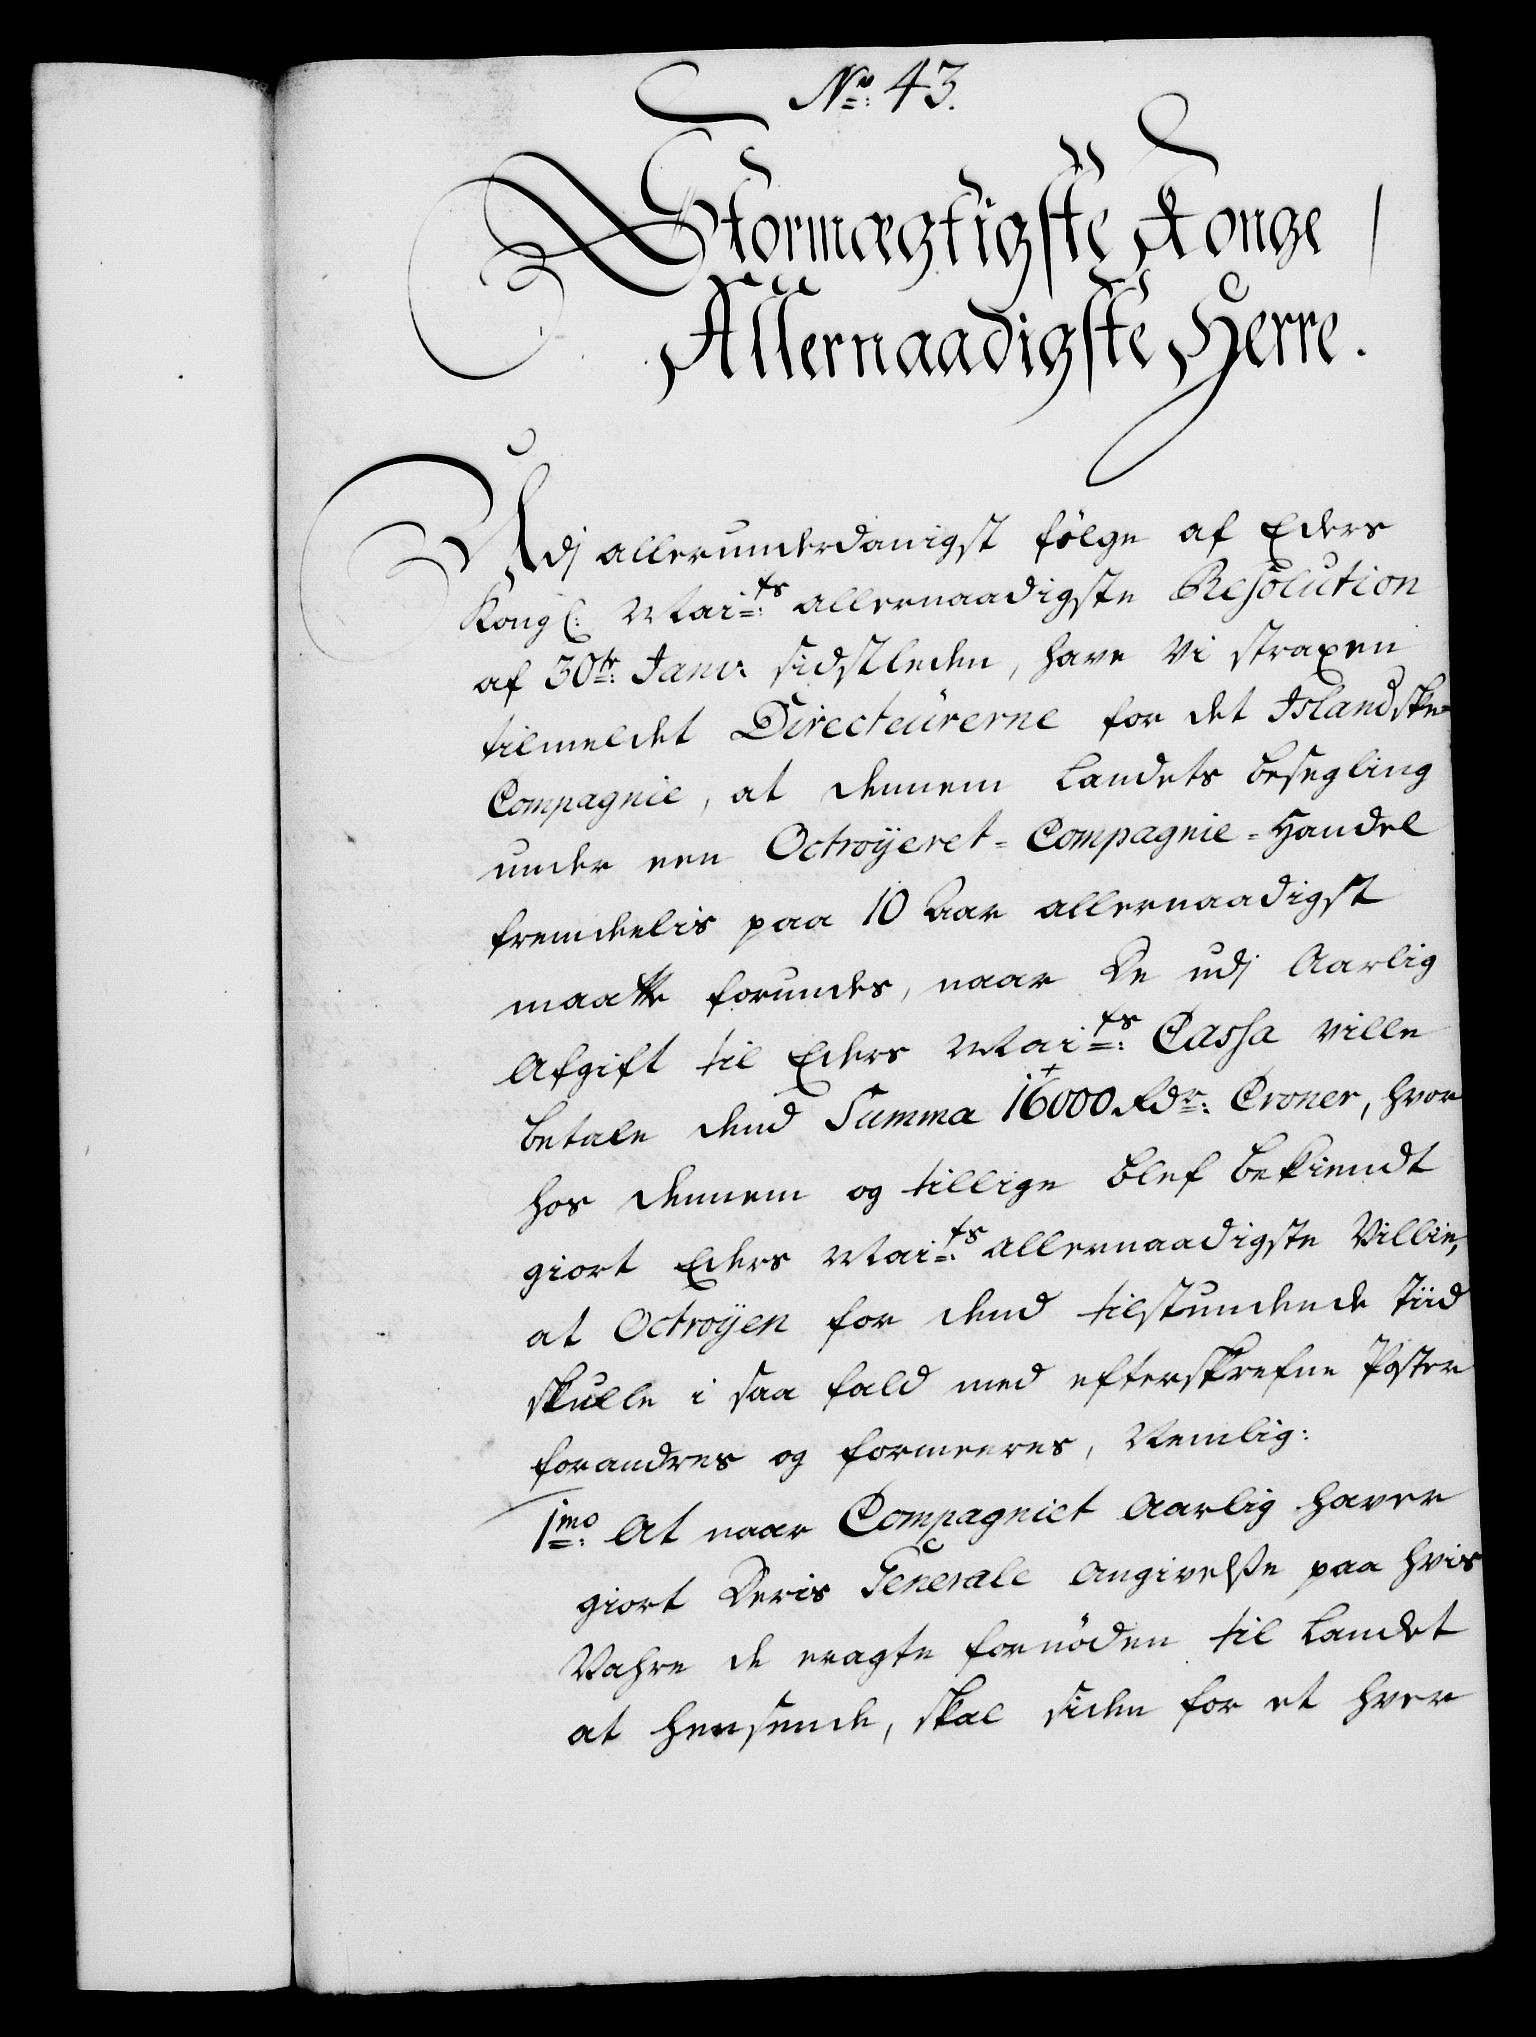 No: 43.
Stormægtigste Konge
Allernaadigste Herre.
Udj allerunderdanigst følge af Eders
Kongl: Maits: allernaadigste Resolution
af 30te: Janv: sidstleden, have Vi straxen
tilmeldet Directeürerne for det Islandske
Compagnie, at dennem Landets besegling
under een Octroÿeret-Compagnie-Handel
fremdeelis paa 10 Aar allernaadigst
maatte forundes, naar De udj Aarlig
Afgift til Eders Maits: Cassa ville
betale dend Summa 16000 Rdr: Croner, hvor
hos dennem og tillige blef bekiendt
giort Eders Maits: allernaadigste Villie,
at Octroÿen for dend tilstundende Tiid
skulle i saa fald med efterskrefne Poster
forandres og formeeres, Nemlig:
1mo: At naar Compagniet Aarlig haver
giort Deris Generale Angivelse paa hvis
Vahre de eragte fornöden til Landet
at hensende, skal siden for et hver